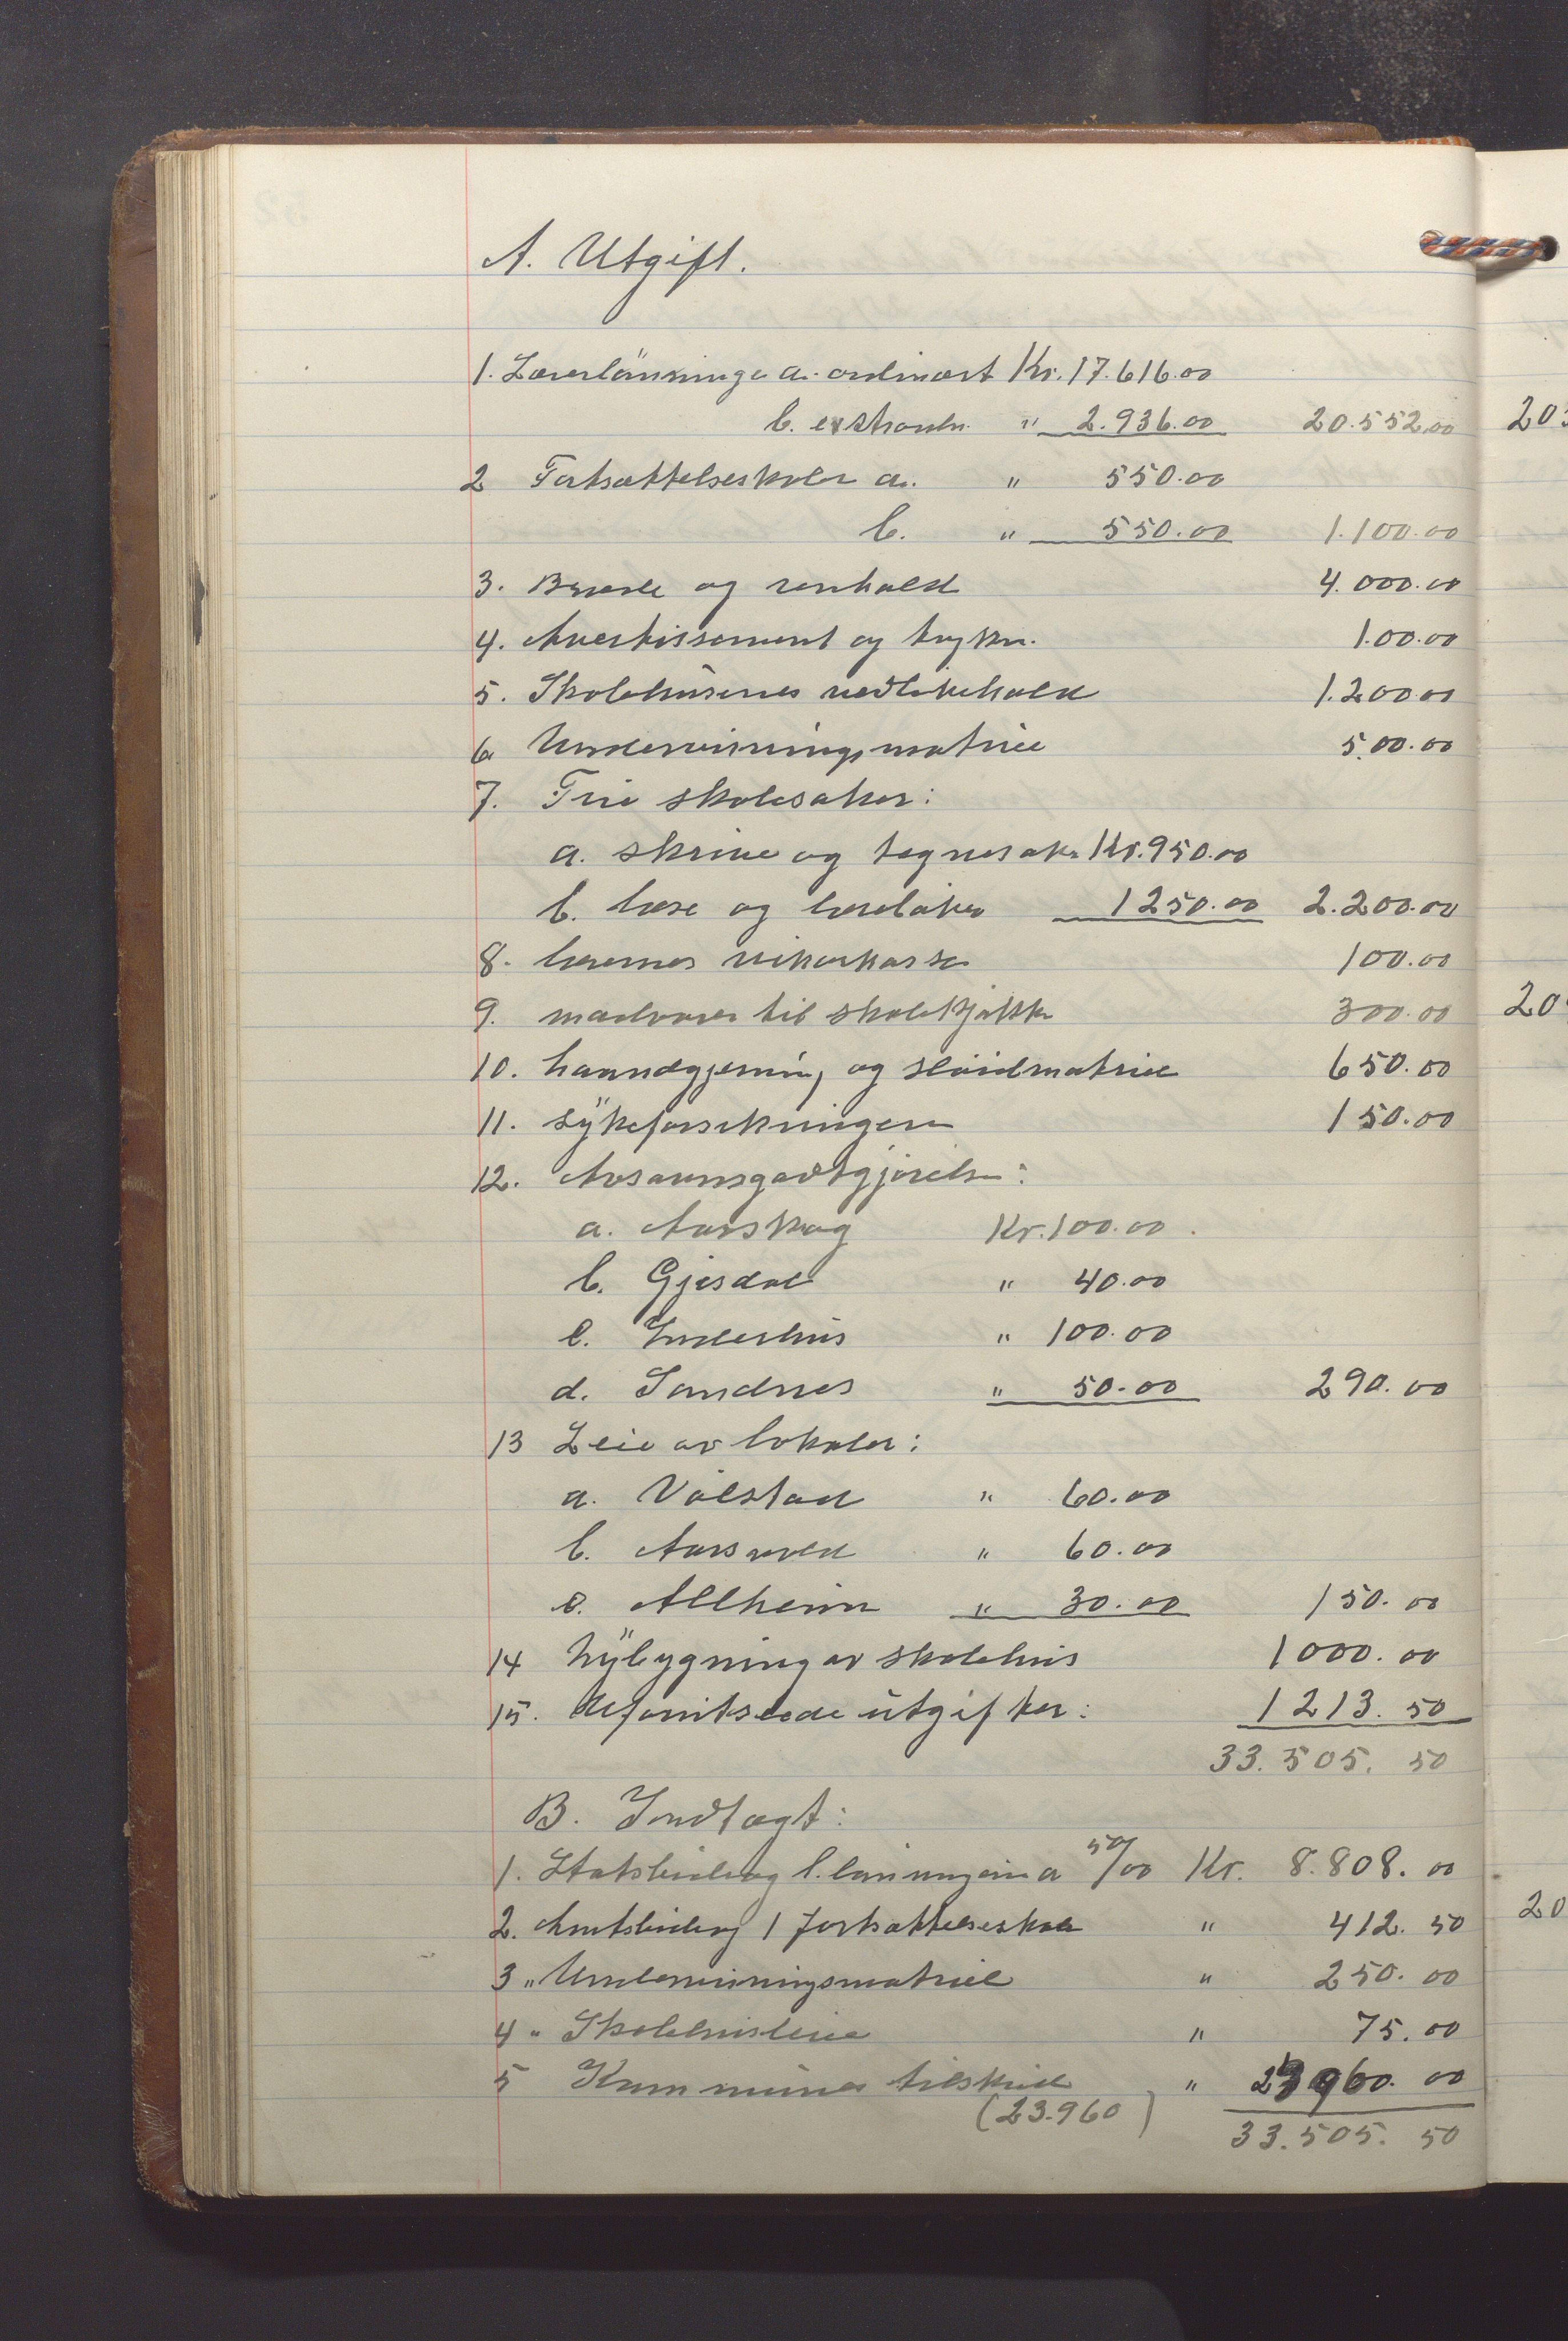 A. Utgift.
1. Lærerlönninge a. ordinært Kr. 17.616.00
b. extraordn. " 2.936.00 20.552.00
2 Fortsættelseskoler a. " 550.00
b. " 550.00 1.100.00
3. Brænde og renhold 4.000.00
4. Avertissement og trykn. 100.00
5. Skolehusenes vedlikehold 1.200.00
6 Undervisningsmatriel 500.00
7. Frie skolesaker:
a. skrive og tegnesak. Kr. 950.00
b. læse og lærebøker 1250.00 2.200.00
8. lærernes vikarkasse 100.00
9. madvarer til skolekjøkk. 300.00
10. haandgjerning og sløidmatriel 650.00
11. sykeforsikringen 150.00
12. Avsavnsgodtgjørelse:
a. Aarskog Kr. 100.00.
b. Gjesdal " 40.00
c. " 100.00
d. Sandnes " 50.00 290.00
13 Leie av lokaler:
a. Vålstad " 60.00
b. Aarsvold " 60.00
c. Allheim " 30.00 150.00
14 Nybygning av skolehus 1000.00
15. Uforutseede utgifter: 1213.50
33.505.50
B. Indtægt:
1. Statsbidrag l. lönningerne a 50/00 Kr. 8.808.00
2. Amtsbidrag / fortsættelseskole " 412.50
3 " Undervisningsmatriel " 250.00
4 " Skolehusleie " 75.00
5 Kommunes tilskud " 23960.00
(23.960)
33.505.50